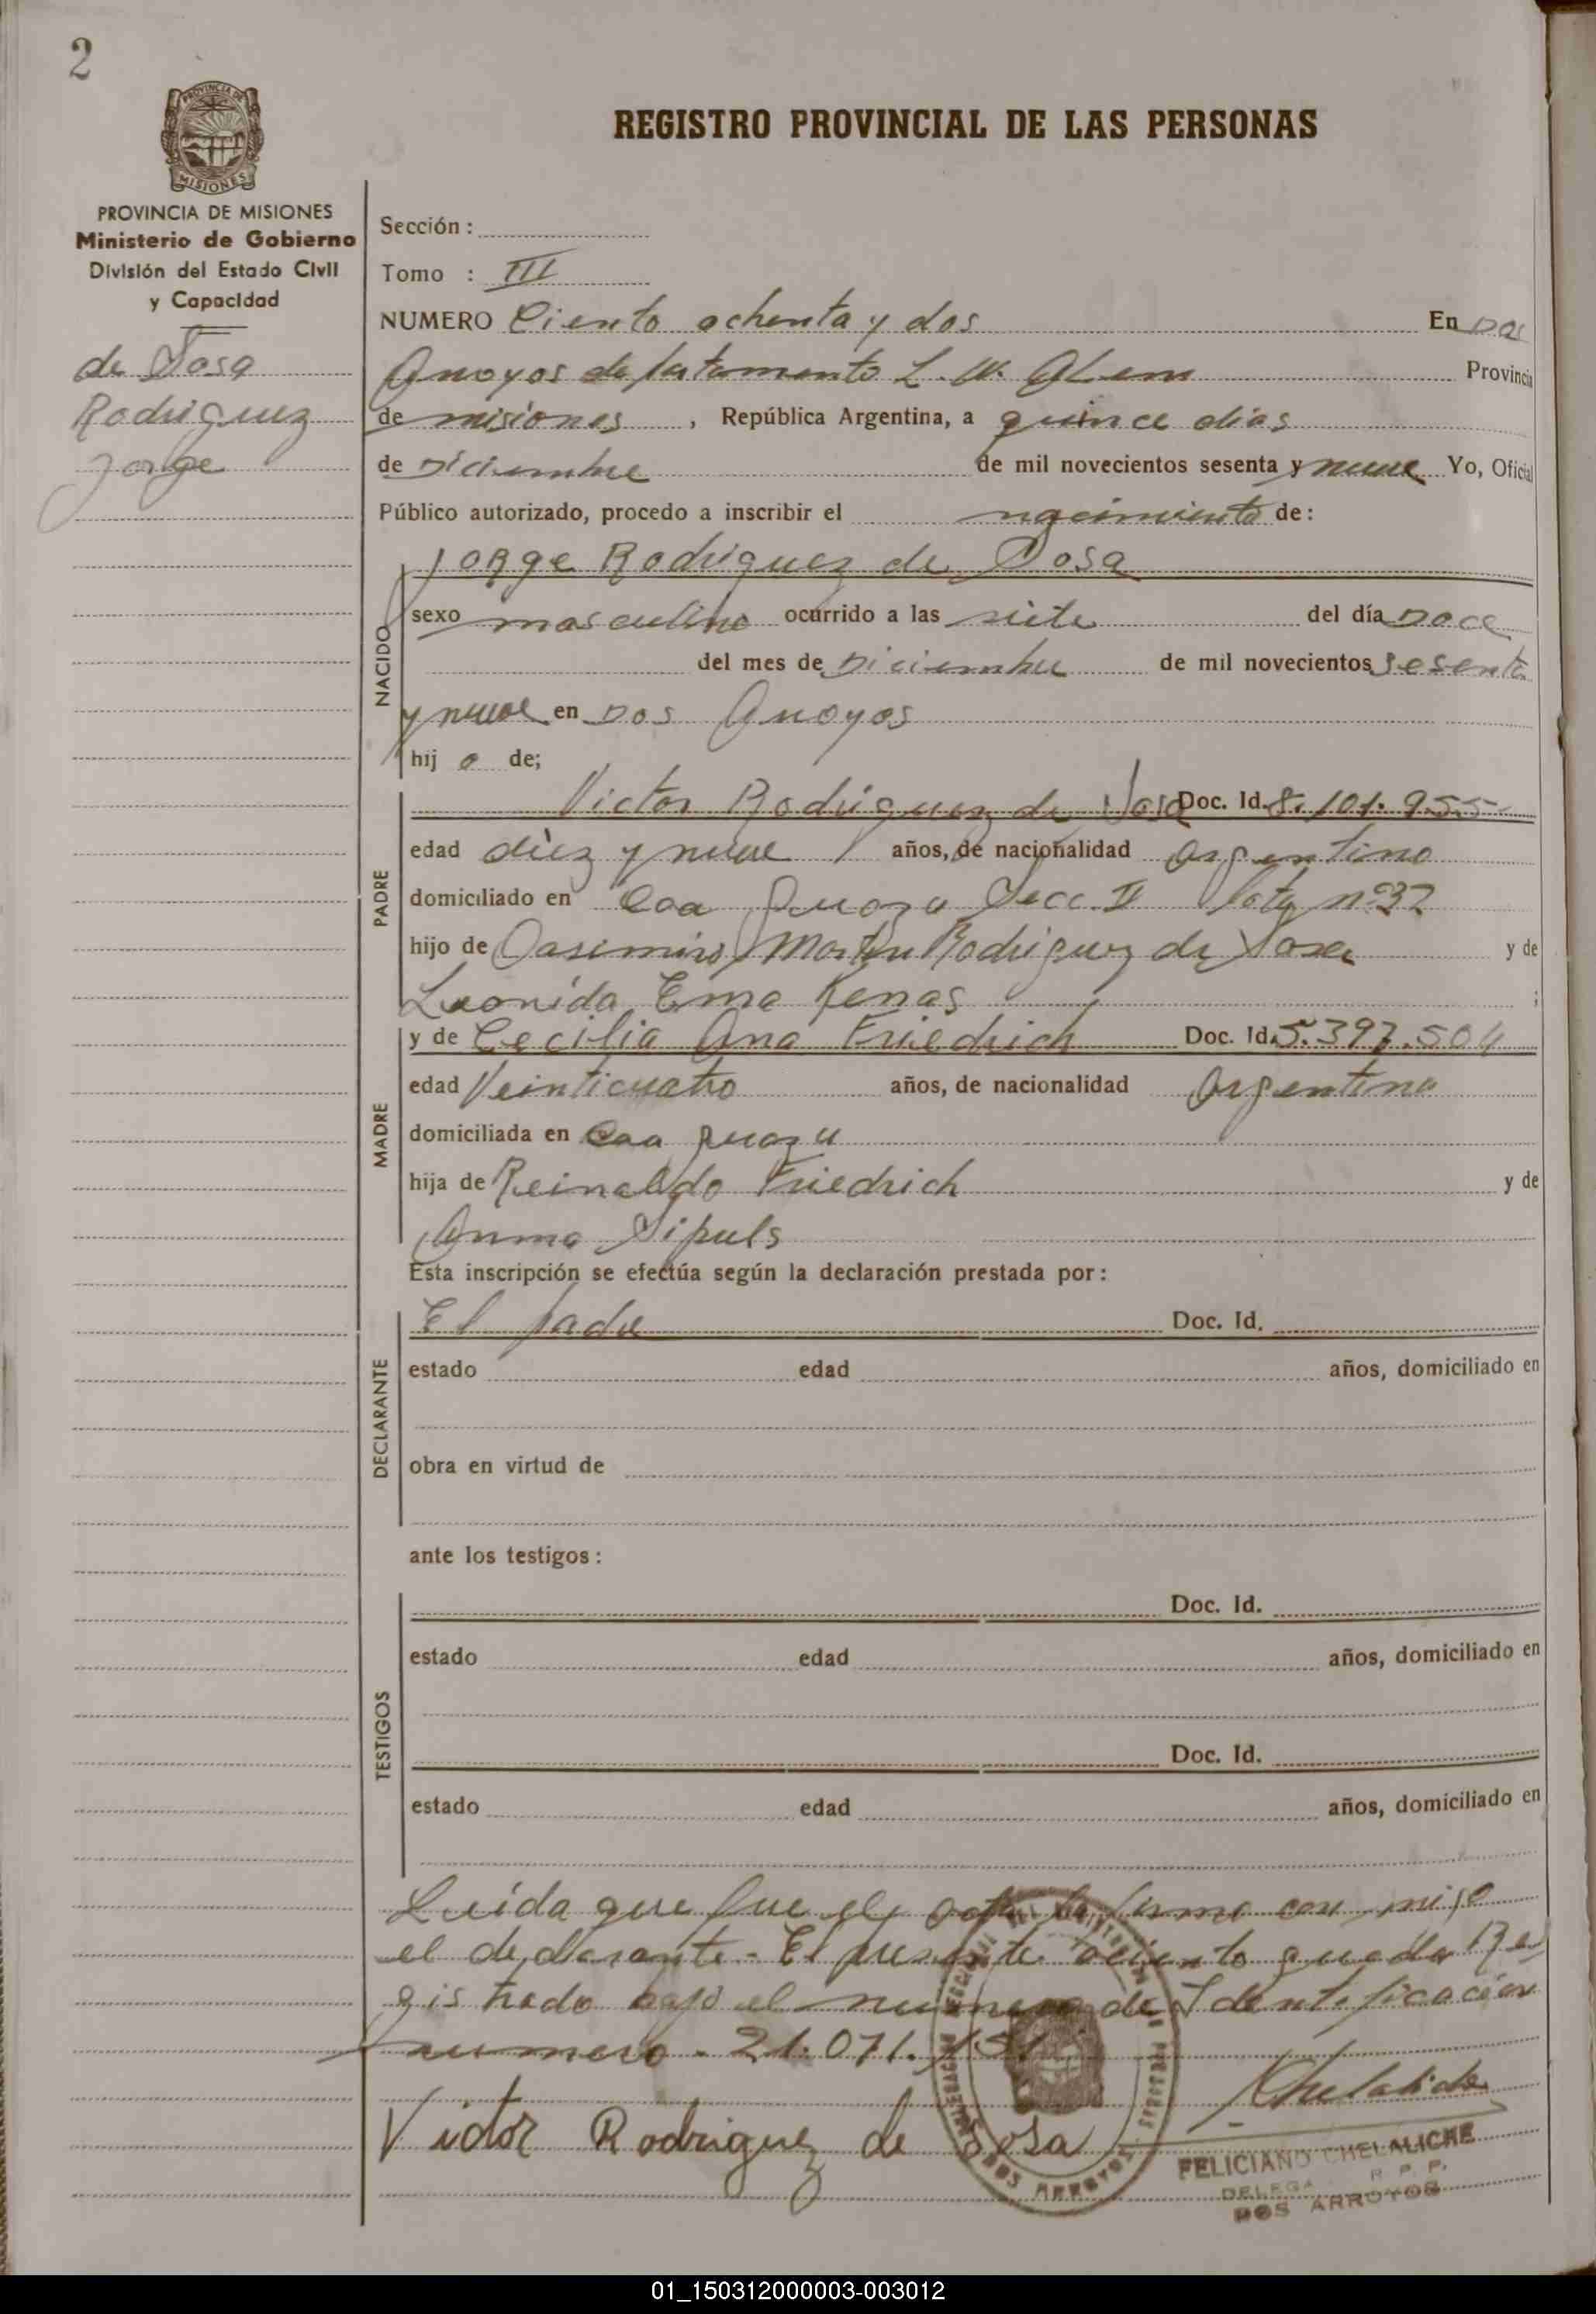 2
PROVINCIA DE MISIONES
PROVINCIA DE MISIONES
Ministerio de Gobierno
División del Estado Civil
y Capacidad
de Sosa
Rodriguez
Jorge
REGISTRO PROVINCIAL DE LAS PERSONAS
Sección :
Tomo : III
NUMERO Ciento ochenta y dos En Dos
Arroyos departamento L. N. Alem Provincia
de misiones , República Argentina, a quince dias
de Diciembre de mil novecientos sesenta y nueve Yo, Oficial
Público autorizado, procedo a inscribir el nacimiento de :
Jorge Rodriguez de Sosa
NACIDO
sexo masculino ocurrido a las siete del día Doce
del mes de Diciembre de mil novecientos sesenta
y nueve en Dos Arroyos
hij o de;
PADRE
Victor Rodriguez de Sosa Doc. Id. 8.101.955
edad diez y nueve años, de nacionalidad argentino
domiciliado en Caa Guazu Secc. II lote nº 32
hijo de Casemiro Martin Rodriguez de Sosa y de
Leonida Ema Kenas ;
MADRE
y de Cecilia Ana Friedrich Doc. Id. 5.397.504
edad Veinticuatro años, de nacionalidad Argentina
domiciliada en Caa Guazu
hija de Reinaldo Friedrich y de
Anna Sipuls
Esta inscripción se efectúa según la declaración prestada por :
DECLARANTE
El padre Doc. Id.
estado edad años, domiciliado en
obra en virtud de
ante los testigos :
TESTIGOS
Doc. Id.
estado edad años, domiciliado en
Doc. Id.
estado edad años, domiciliado en
Leida que fue el acta la firma con migo
el declarante - El presente aciento queda Re
gistrado bajo el numero de Identificación
numero - 21.071.151
Victor Rodriguez de Sosa
DOS ARROYOS
FELICIANO CHELALICHE
DELEGA R. P. P.
DOS ARROYOS
01_150312000003-003012